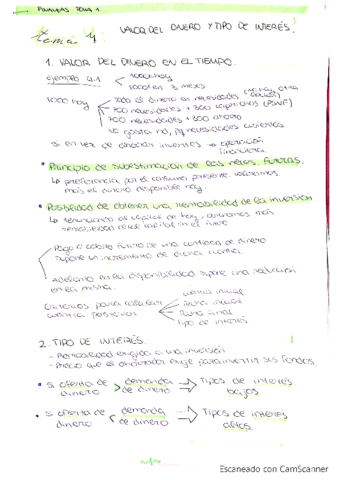 FINANZAS TEMA 4.
tema 4: VALOR DEL DINERO Y TIPO DE INTERÉS.
1. VALOR DEL DINERO EN EL TIEMPO.
ejemplo 4.1
1000 hoy
1000 en 3 meses
1000 hoy
todo el dinero en necesidades (no hay otra
700 necesidades + 300 caprichos
700 necesidades + 300 ahorro
no gasta nd, pq necesidades cubiertas
si en vez de ahorrar invierte → operación
financiera
• Principio de subestimación de las neces. futuras.
↳ preferencia por el consumo presente, valoramos
más el dinero disponible hoy
• Posibilidad de obtener una rentabilidad de la inversión
↳ renunciando al capital de hoy, obtenemos más
rentabilidad del capital en el futuro
Pago o cobro futuro de una cantidad de dinero
supone un incremento de dicha cuantía.
Adelanto en la disponibilidad supone una reducción
en la misma.
Criterios para calcular
cuantía posterior
cuantía inicial
Plazo inicial
Plazo final
tipo de interés
2. TIPO DE INTERÉS.
- Rentabilidad exigida a una inversión
- Precio que el ahorrador exige para invertir sus fondos.
• si oferta de dinero > demanda de dinero ⇒ Tipos de interés bajos
• si oferta de dinero < demanda de dinero ⇒ Tipos de interés altos
Escaneado con CamScanner